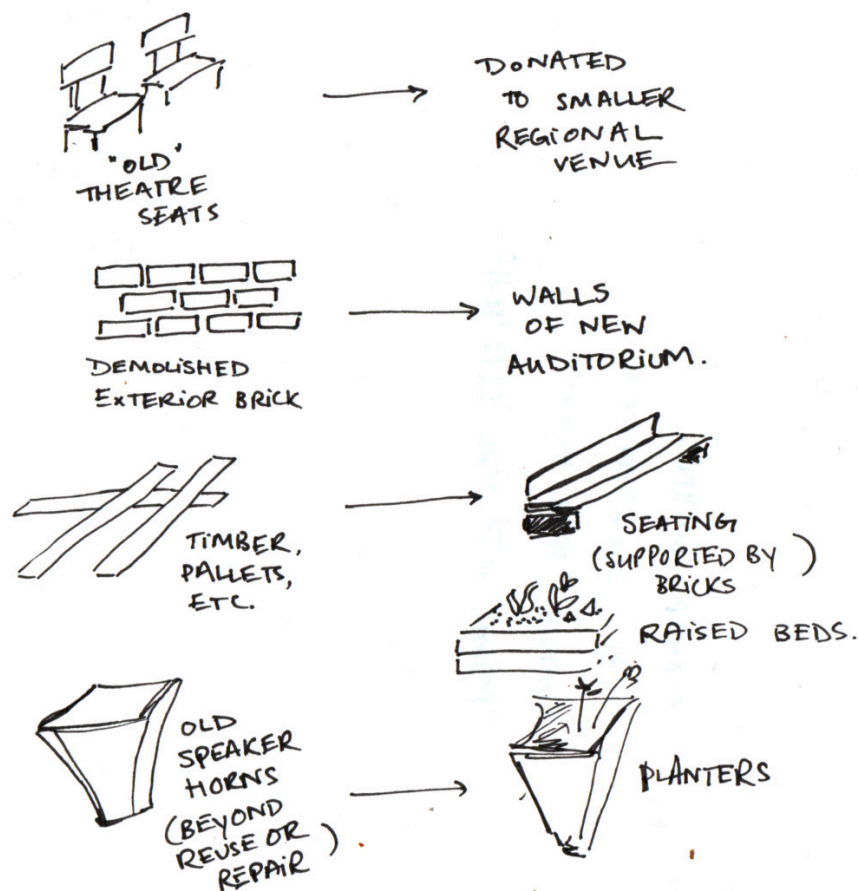 "OLD"
THEATRE
SEATS
DONATED
TO SMALLER
REGIONAL
VENUE
DEMOLISHED
EXTERIOR BRICK
WALLS
OF NEW
AUDITORIUM.
TIMBER,
PALLETS,
ETC.
SEATING
(SUPPORTED BY)
BRICKS
RAISED BEDS.
OLD
SPEAKER
HORNS
(BEYOND
REUSE OR
REPAIR)
PLANTERS